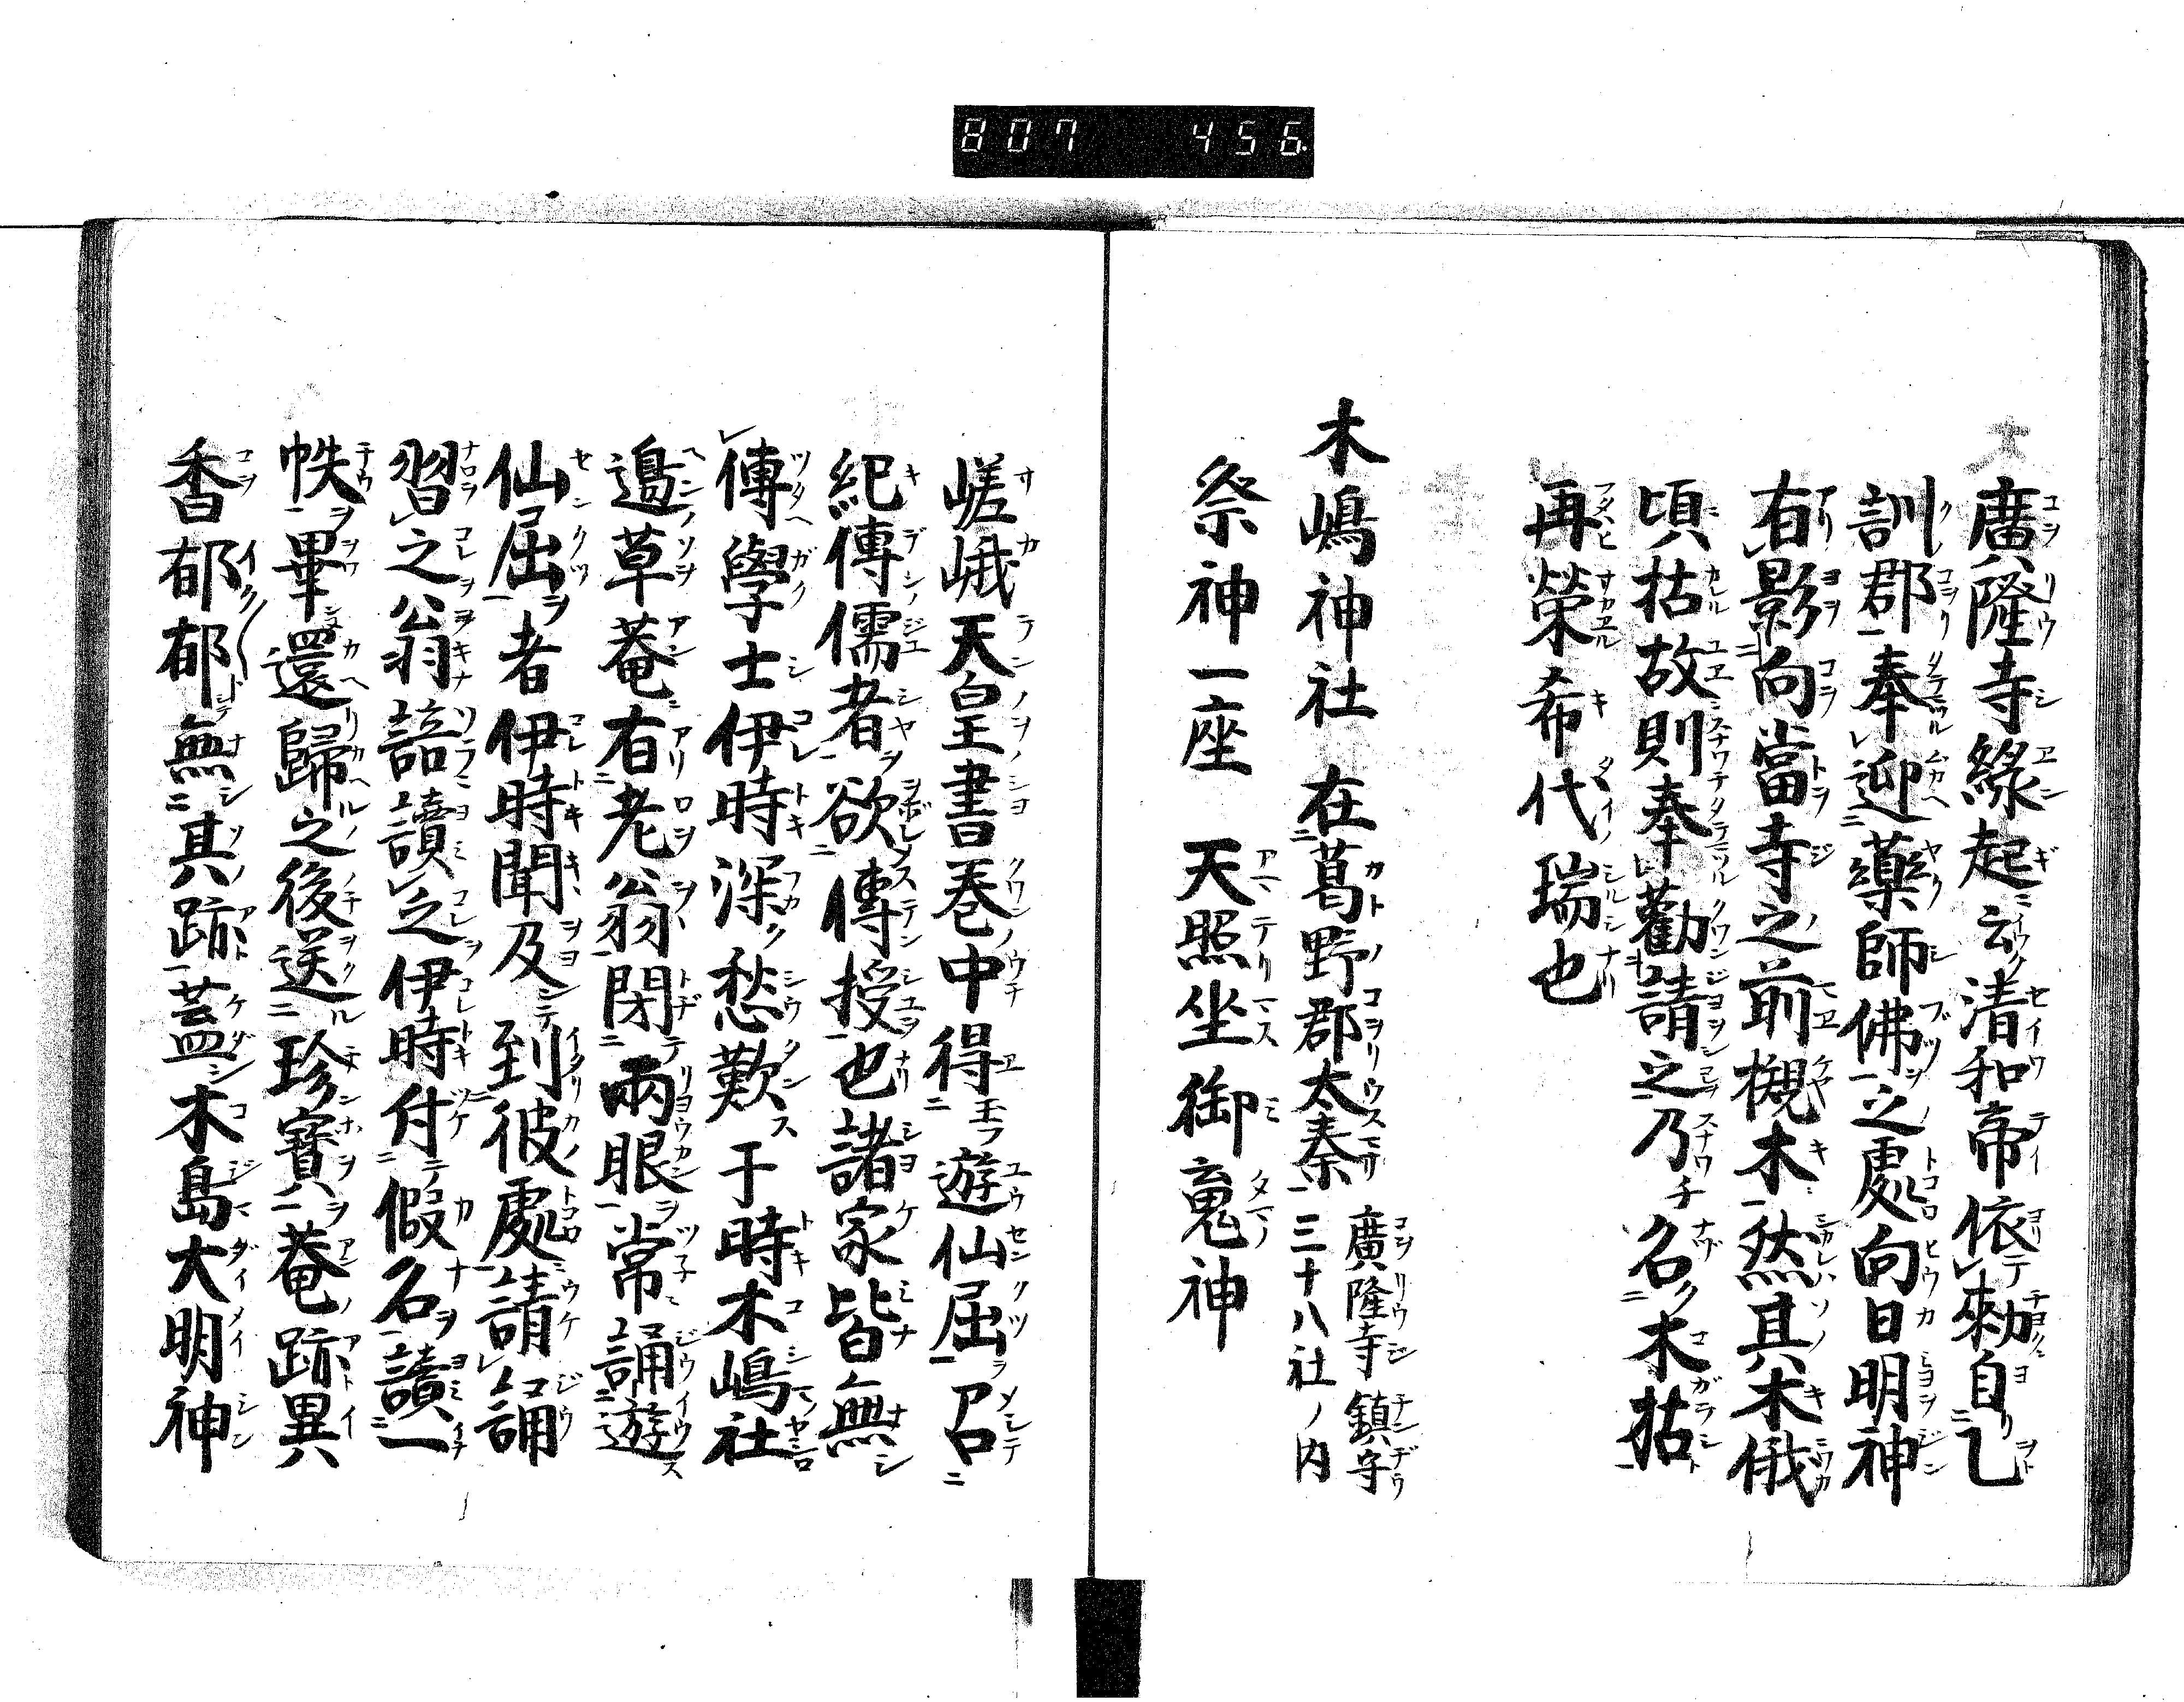 807 456
廣隆寺緣起云清和帝依勅自乙
訓郡奉迎藥師佛之處向日明神
有影向當寺之前槻木然其木俄
頃枯故則奉勸請之乃チ名木枯
再榮希代瑞也
木嶋神社 在葛野郡太秦 廣隆寺鎮守
三十八社ノ内
祭神一座 天照坐御䰟神
嵯峨天皇書巻中得遊仙屈召
紀傳儒者欲傳授也諸家皆無
傳學士伊時深愁歎于時木嶋社
邉草菴有老翁閉兩眼常誦遊
仙屈者伊時聞及到彼處請誦
習之翁諳讀之伊時付假名讀一
帙畢還歸之後送珍寳菴跡異
香郁郁無其跡蓋木島大明神